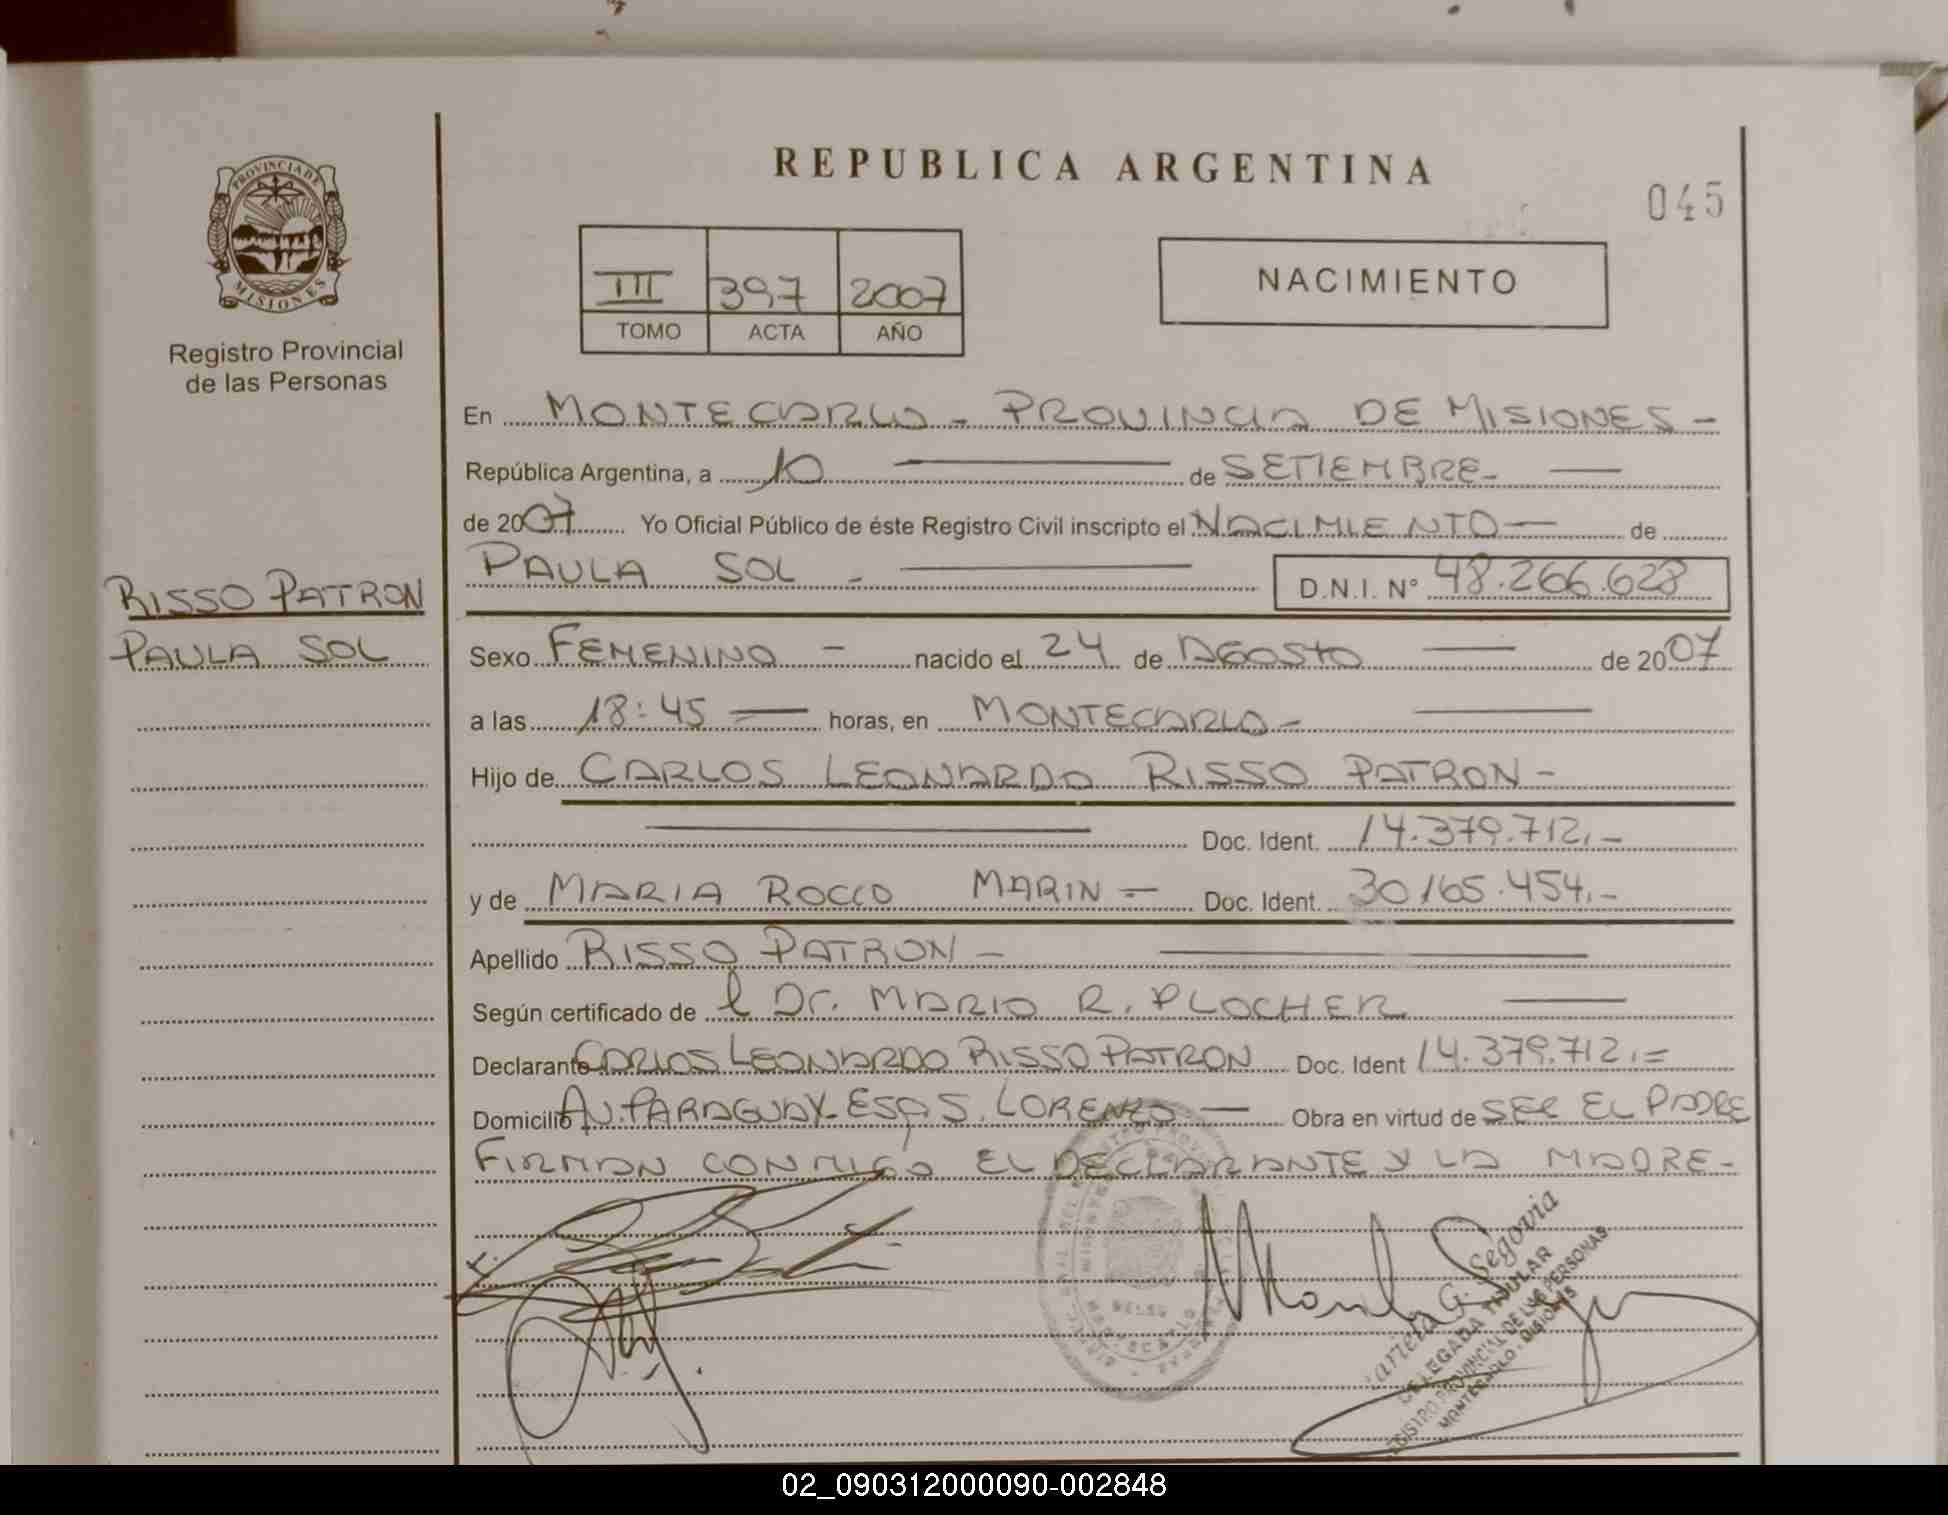 PROVINCIA DE
MISIONES
Registro Provincial
de las Personas
REPUBLICA ARGENTINA
045
III 397 2007
TOMO ACTA AÑO
NACIMIENTO
En MONTECARLO - PROVINCIA DE MISIONES -
República Argentina, a 10 de SETIEMBRE -
de 2007 Yo Oficial Público de éste Registro Civil inscripto el NACIMIENTO de
PAULA SOL -
D.N.I. N° 48.266.628
RISSO PATRON
PAULA SOL
Sexo FEMENINO - nacido el 24 de AGOSTO de 2007
a las 18:45 horas, en MONTECARLO -
Hijo de CARLOS LEONARDO RISSO PATRON -
Doc. Ident. 14.379.712.-
y de MARIA ROCIO MARIN - Doc. Ident. 30.165.454.-
Apellido RISSO PATRON -
Según certificado de l Dr. MARIO R. PLOCHER
Declarante CARLOS LEONARDO RISSO PATRON Doc. Ident 14.379.712.=
Domicilio AV. PARAGUAY ESQ S. LORENZO Obra en virtud de SER EL PADRE
FIRMAN CONMIGO EL DECLARANTE Y LA MADRE -
Mariela G. Segovia
DELEGADA TITULAR
REGISTRO PROVINCIAL DE LAS PERSONAS
MONTECARLO - MISIONES
02_090312000090-002848